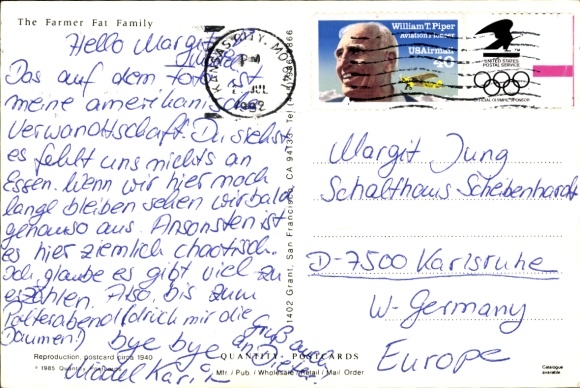 The Farmer Fat Family
Hello Margit
Das auf dem Foto ist
meine amerikanische
Verwandtschaft. Du siehst
es fehlt uns nichts an
Essen. Wenn wir hier noch
lange bleiben sehen wir bald
genauso aus. Ansonsten ist
es hier ziemlich chaotisch.
Ich glaube es gibt viel zu
erzählen. Also, bis zum
Polterabend! (drück mir die
Daumen!)
bye bye
Gruß auch
an
Mädel Karin
Reproduction, postcard circa 1940
© 1985 Quantity Postcards
QUANTITY POSTCARDS
Mfr. / Pub. / Wholesale / Retail / Mail Order
1402 Grant, San Francisco, CA 94133
KANSAS CITY, MO
PM
JUL
1992
William T. Piper
Aviation Pioneer
USAirmail
40
UNITED STATES
POSTAL SERVICE
OFFICIAL OLYMPIC SPONSOR
Margit Jung
Schalthaus Scheibenhardt
D-7500 Karlsruhe
W-Germany
Europe
Catalogue
available